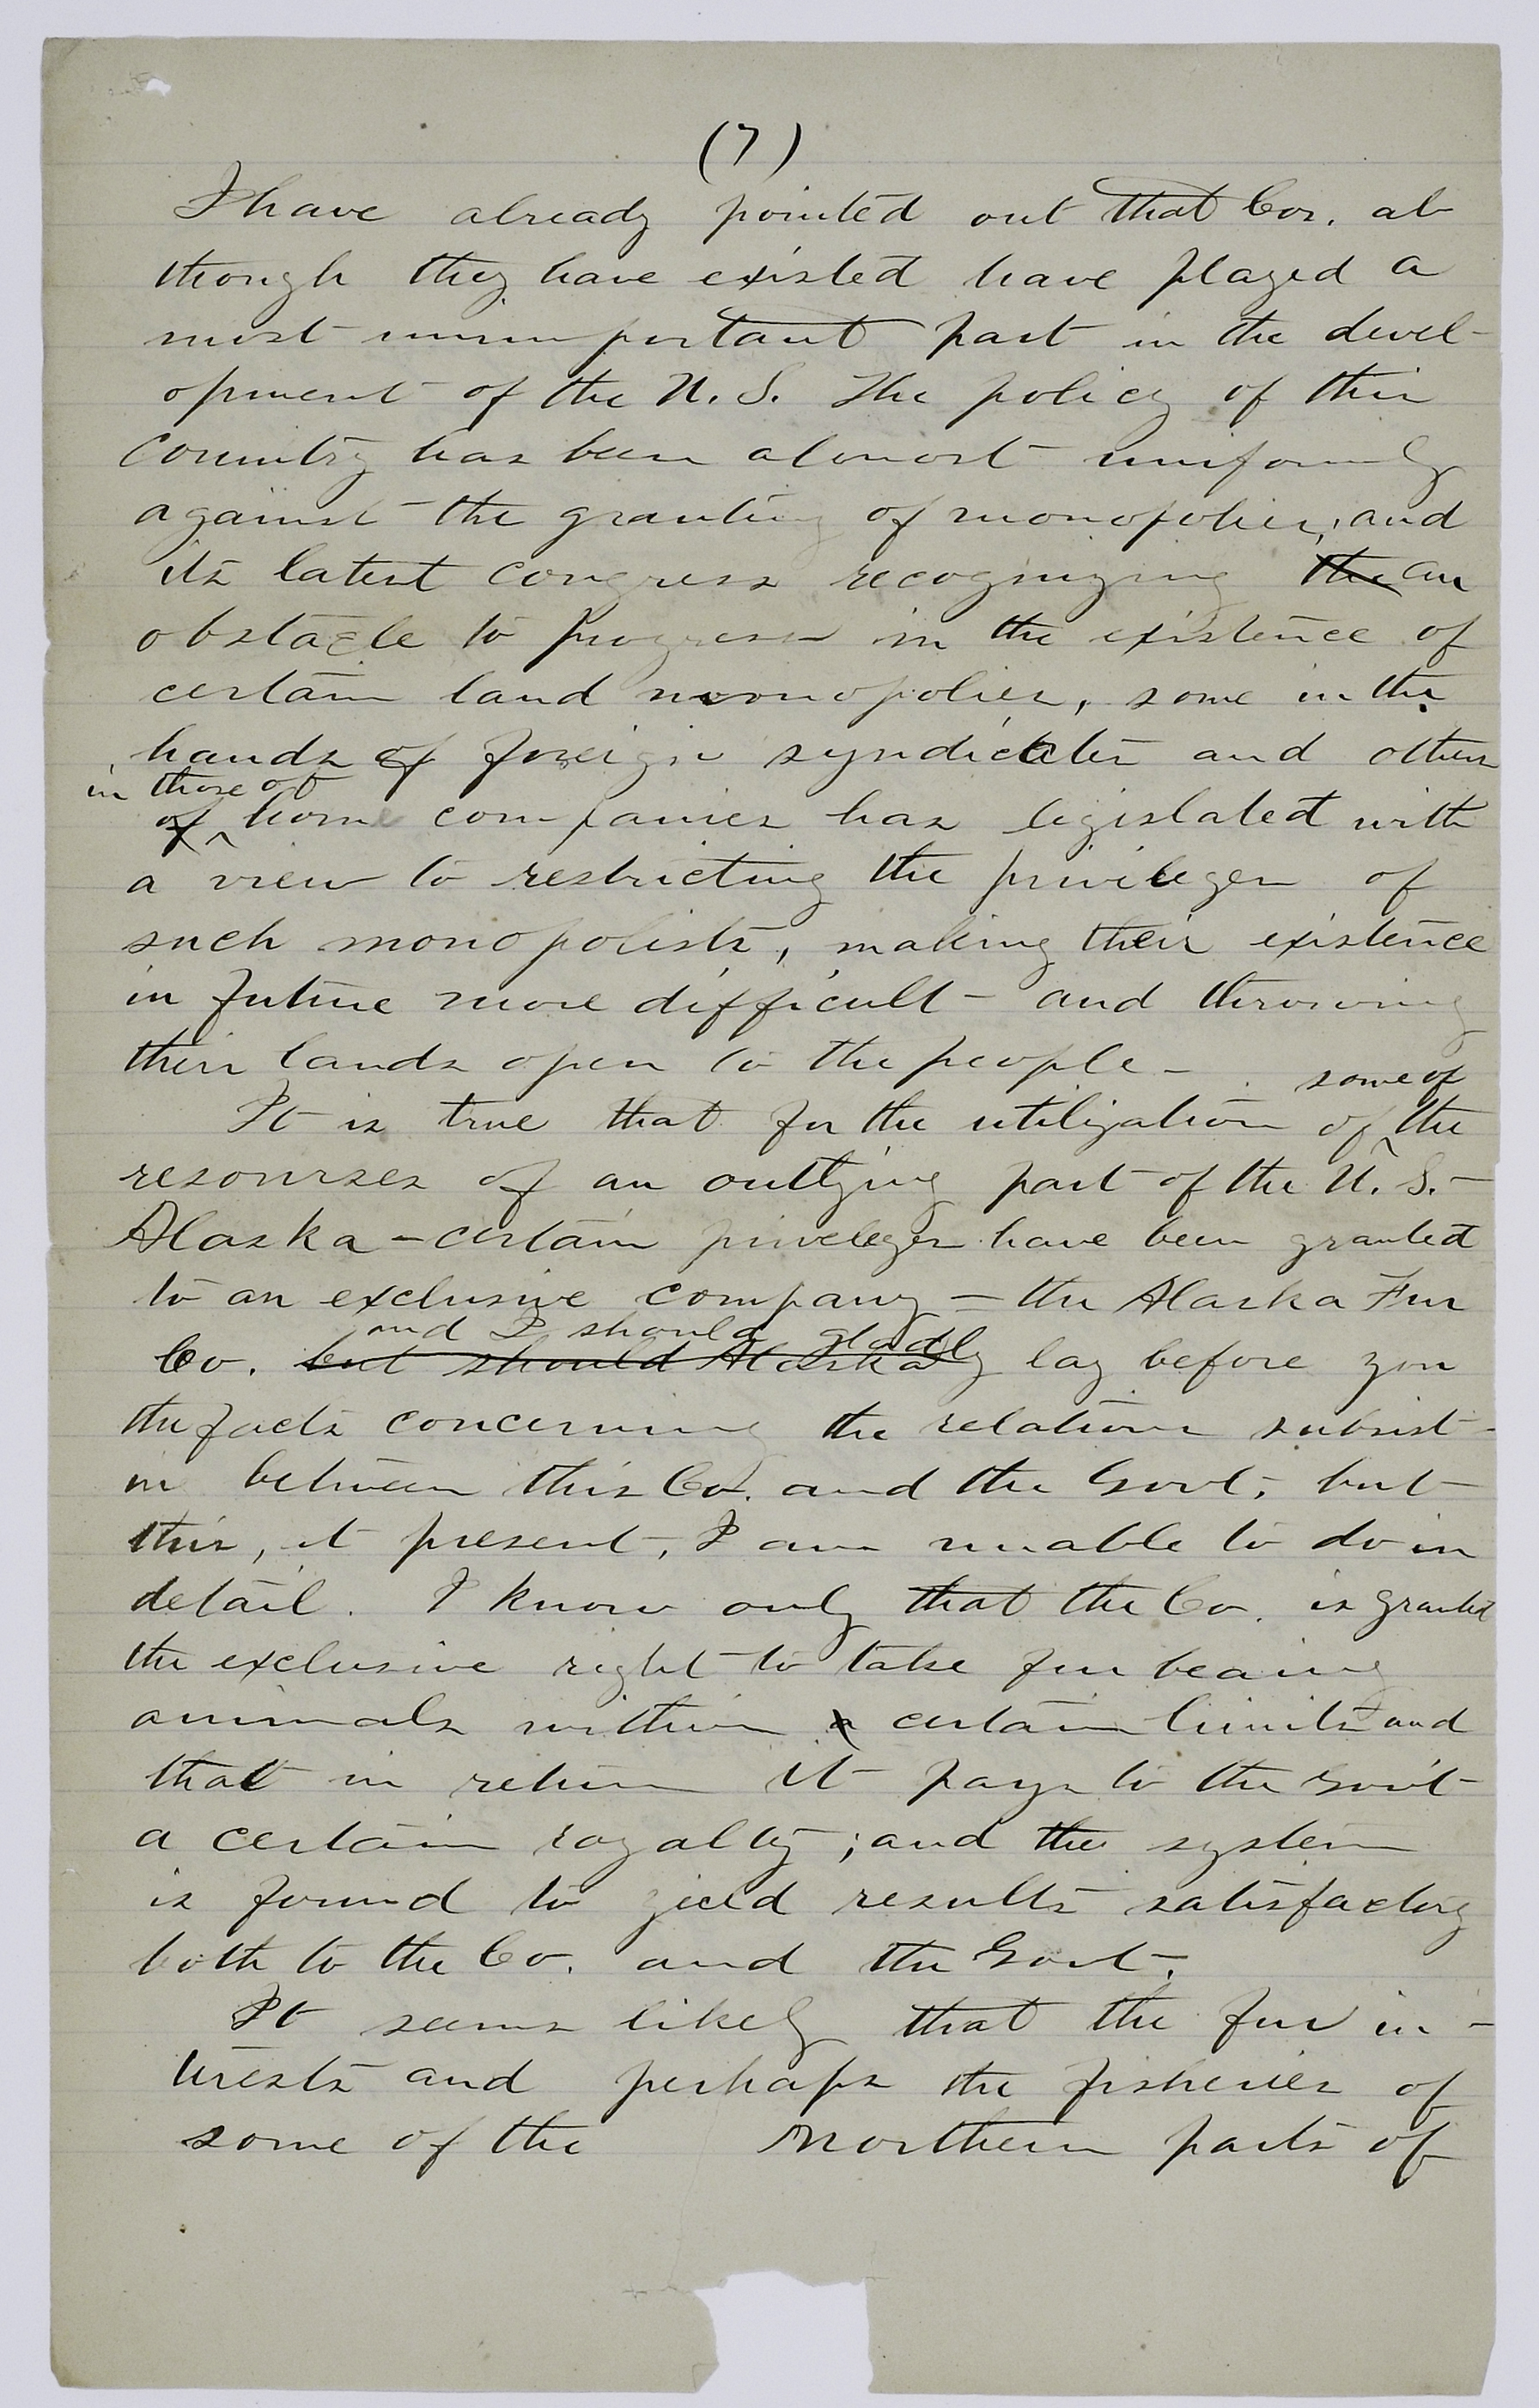 (7)
I have already pointed out that Cos. al-
though they have existed have played a
most unimportant part in the devel-
opment of the U.S. The policy of this
country has been almost uniformly
against the granting of monopolies; and
its latest congress recognizing the an
obstacle to progress in the existence of
certain land monopolies, some in the
hands of foreign syndicates and others
in those of
of home companies has legislated with
a view to restricting the privileges of
such monopolists, making their existence
in future more difficult - and throwing
their lands open to the people -
some of
It is true that for the utilization of the
resourses of an outlying part of the U.S. -
Alaska - certain priveleges have been granted
to an exclusive company - the Alaska Fur
and I should gladly
Co. but should Alaska lay before you
the facts concerning the relations subsist-
in between this Co. and the Govt; but
this, at present, I am unable to do in
detail. I know only that the Co. is granted
the exclusive right to take fur bearing
animals within a certain limits and
that in return it pays to the Gov't
a certain royalty; and the system
is found to yield results satisfactory
both to the Co. and the Govt.
It seems likely that the fur in-
terests and perhaps the fisheries of
some of the Northern parts of